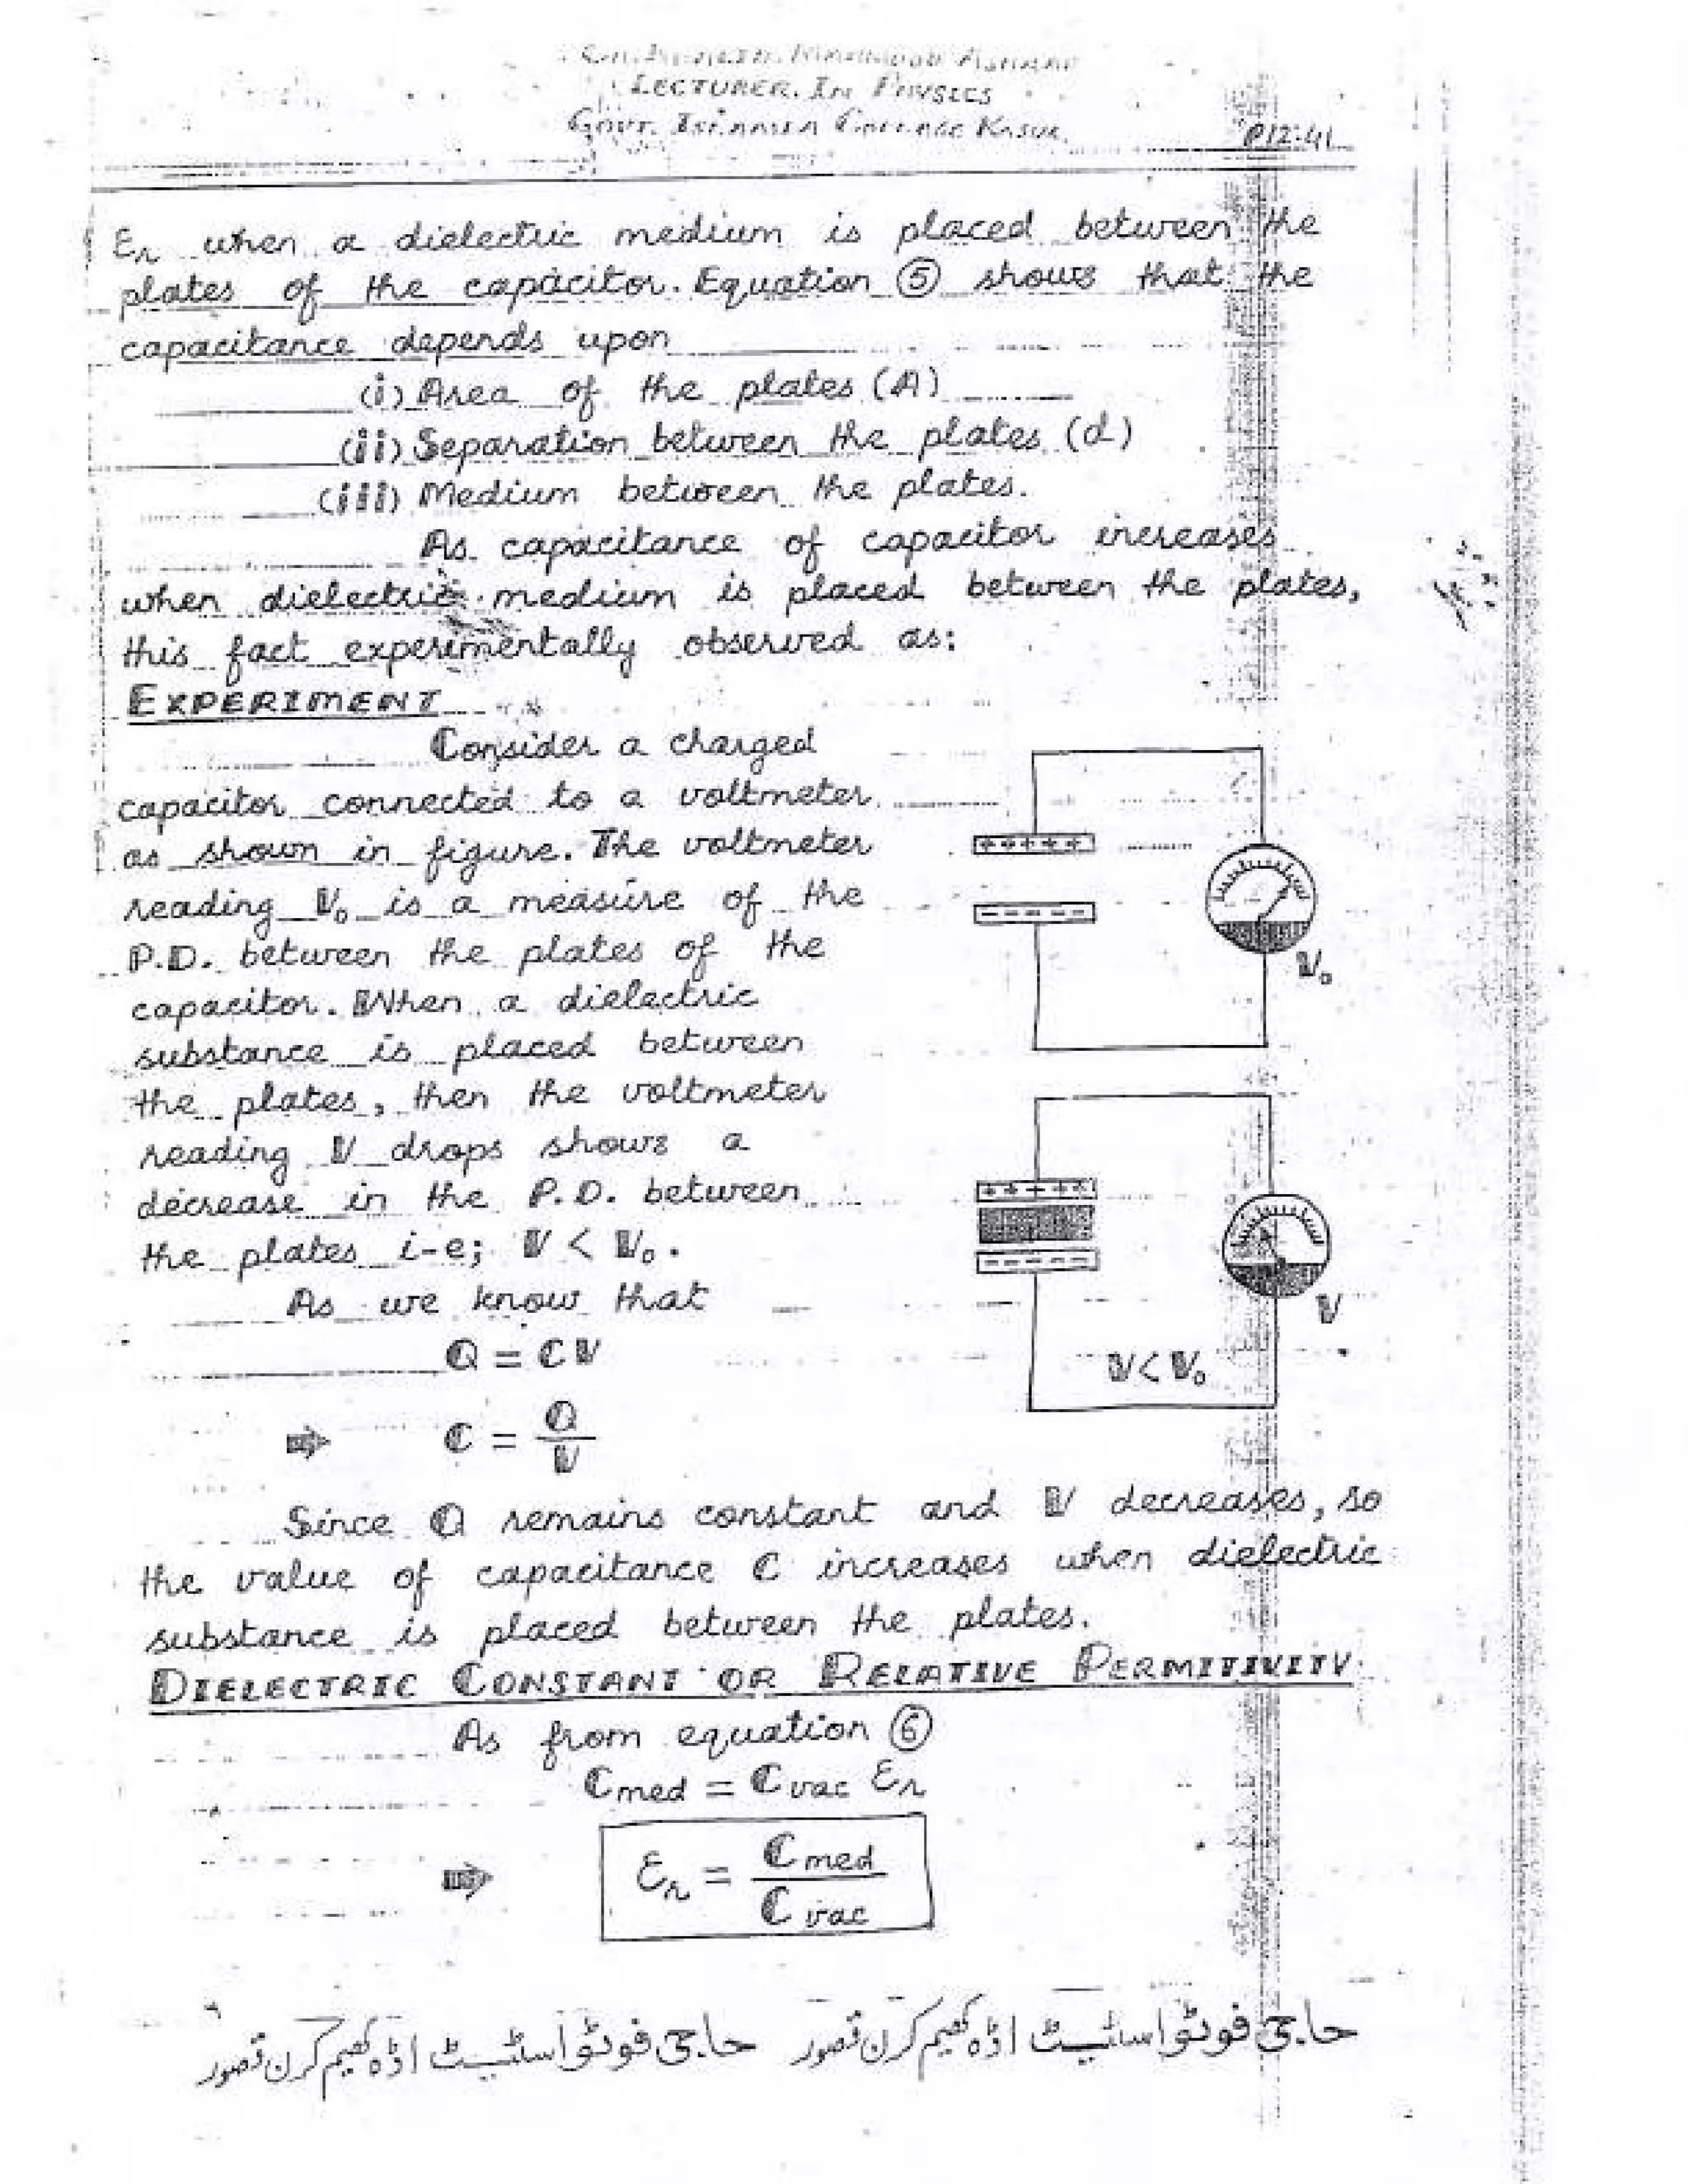 LECTURER. IN PHYSICS
GOVT. ISLAMIA COLLEGE KASUR.
P12:41
εr when a dielectric medium is placed between the
plates of the capacitor. Equation ⑤ shows that the
capacitance depends upon
(i) Area of the plates (A)
(ii) Separation between the plates (d)
(iii) Medium between the plates.
As capacitance of capacitor increases
when dielectric medium is placed between the plates,
this fact experimentally observed as:
EXPERIMENT
Consider a charged
capacitor connected to a voltmeter
as shown in figure. The voltmeter
reading V₀ is a measure of the
P.D. between the plates of the
capacitor. When a dielectric
substance is placed between
the plates, then the voltmeter
reading V drops shows a
decrease in the P.D. between
the plates i-e; V < V₀.
+++++
-----
V₀
+++++
-----
V
V < V₀
As we know that
Q = CV
⇒ C = Q/V
Since Q remains constant and V decreases, so
the value of capacitance C increases when dielectric
substance is placed between the plates.
DIELECTRIC CONSTANT OR RELATIVE PERMITIVITY
As from equation ⑥
Cmed = Cvac εr
⇒ εr = Cmed/Cvac
حاجی فوٹو اسٹیٹ اڈہ کھیم کرن قصور حاجی فوٹو اسٹیٹ اڈہ کھیم کرن قصور